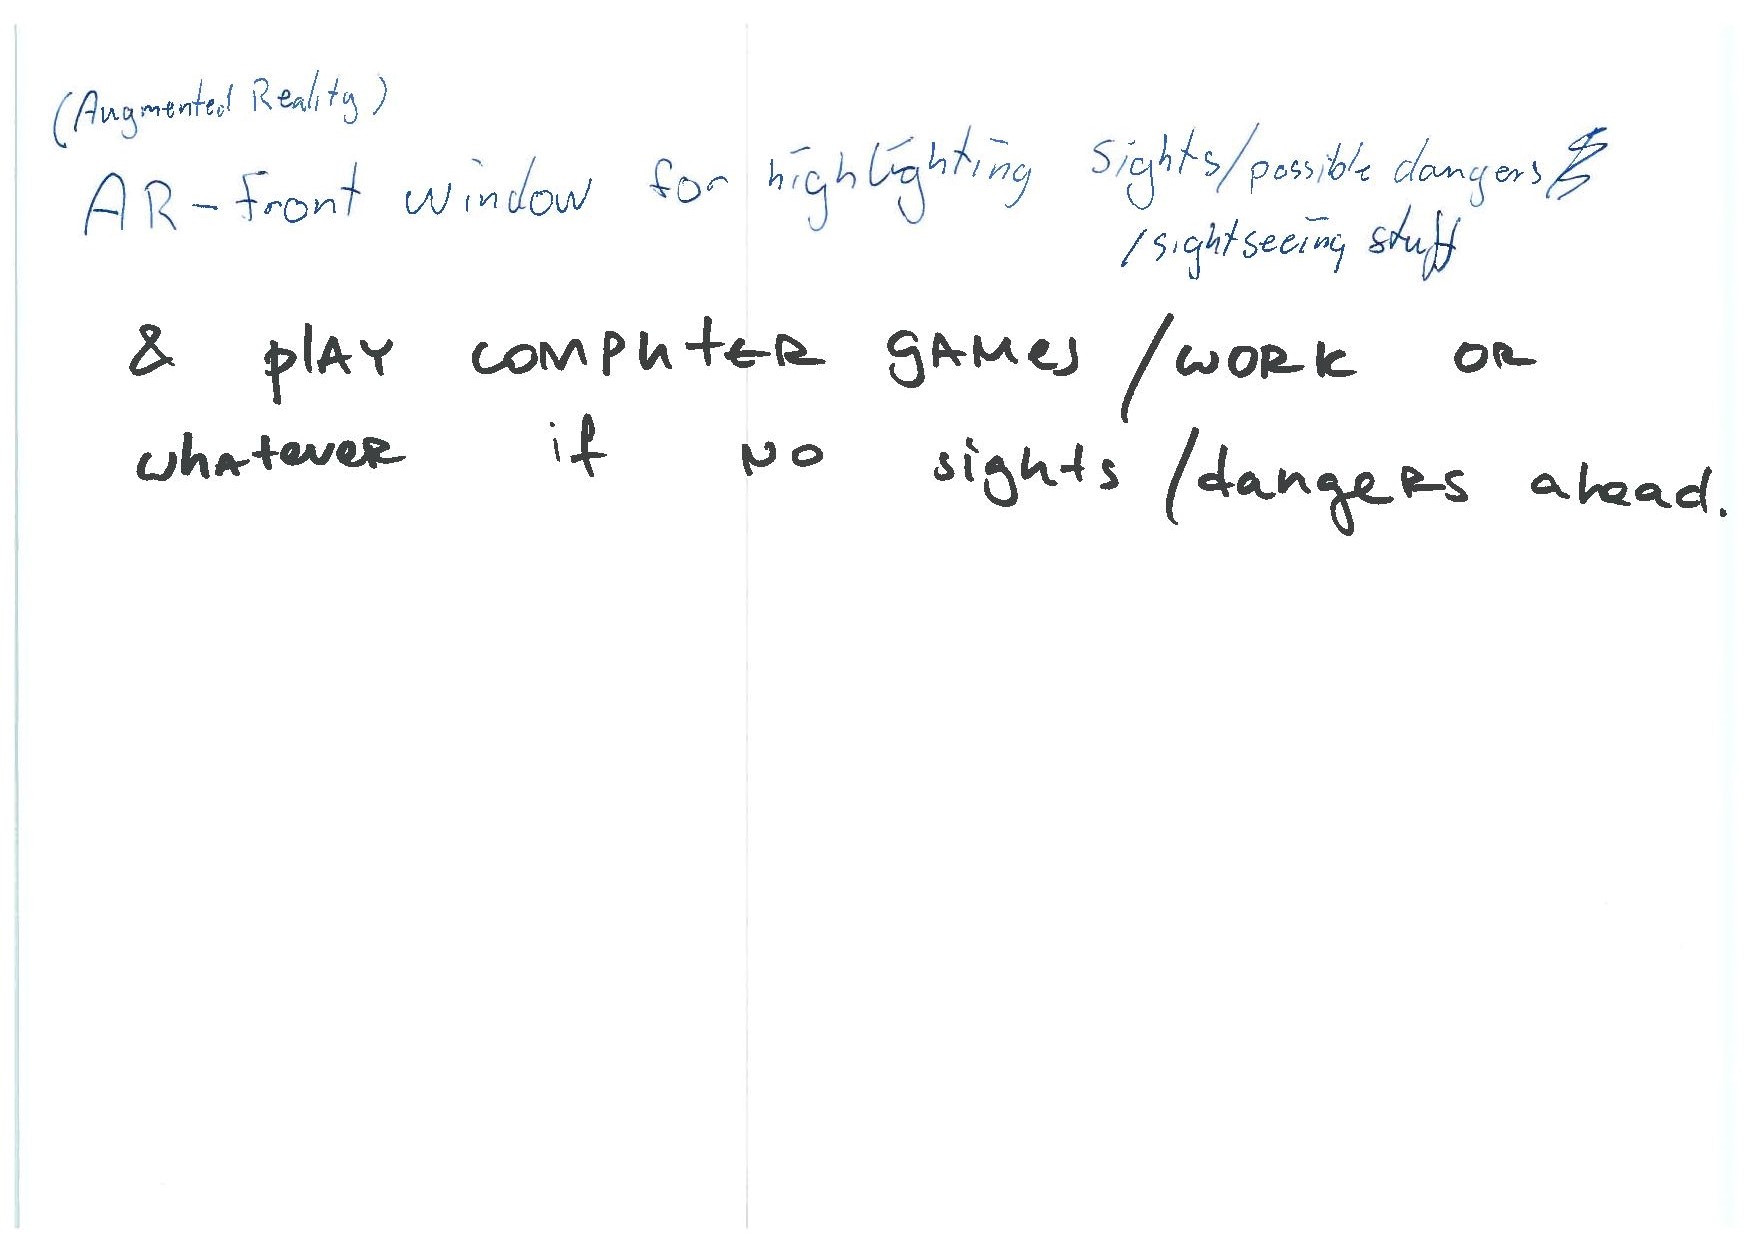 (Augmented Reality)
AR-Front window for highlighting sights/possible dangers
/sightseeing stuff
& plAY computER gAMes /WORK OR
whatever if NO sights/dangeRs ahead.